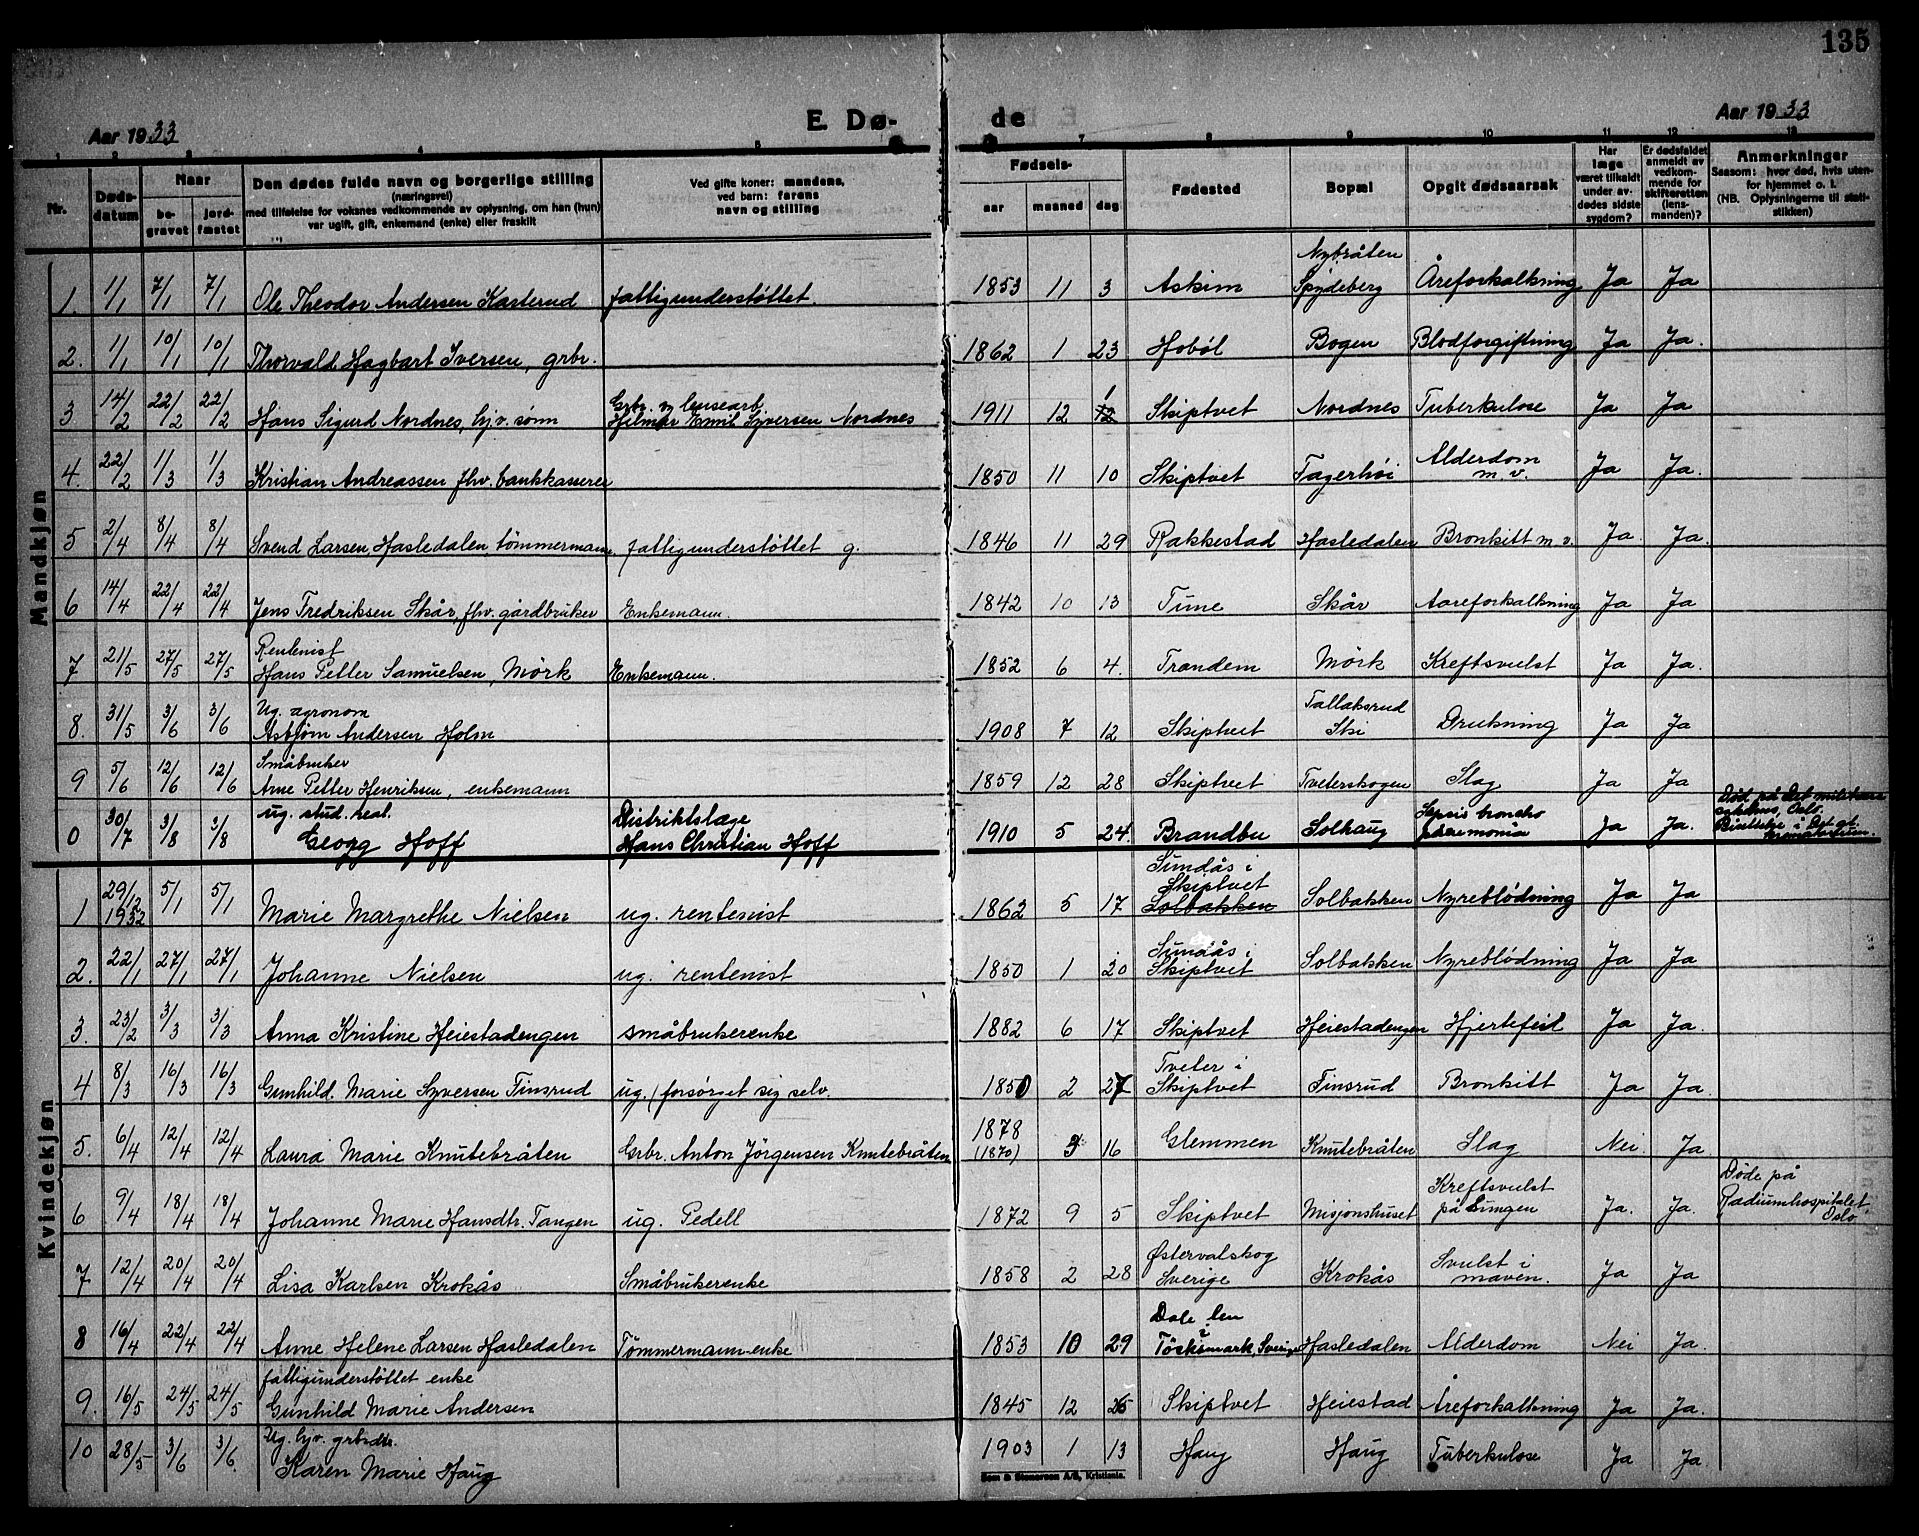 135
Aar 1933
E. Dø-
de
Aar 1933
1 2 3 4 5 7 8 9 10 11 12 13
Nr.
Døds-
datum
Naar
be-
gravet
jord-
fæstet
Den dødes fulde navn og borgerlige stilling
(næringsvei)
med tilføielse for voksnes vedkommende av oplysning, om han (hun)
var ugift, gift, enkemand (enke) eller fraskilt
Ved gifte koner: mandens,
ved barn: farens
navn og stilling
Fødsels-
aar maaned dag
Fødested
Bopæl
Opgit dødsaarsak
Har
læge
været tilkaldt
under av-
dødes sidste
sygdom?
Er dødsfaldet
anmeldt av
vedkom-
mende for
skifteretten
(lens-
manden)?
Anmerkninger
Saasom: hvor død, hvis uten-
for hjemmet o. l.
(NB. Oplysningerne til stati-
stikken)
Mandkjøn
1. 1/1 7/1 7/1 Ole Theodor Andersen Karterud fattigunderstøttet. 1853 11 3 Askim Nybråten Spydeberg Åreforkalkning Ja Ja
2. 1/1 10/1 10/1 Thorvald Hagbart Iversen, grbr. 1862 1 23 Hobøl Bogen Blodforgiftning Ja Ja.
3 14/2 22/2 22/2 Hans Sigurd Nordnes, hjv. sønn Grbr. og lensearb Hilmar Emil Syversen Nordnes 1911 12 12 1 Skiptvet Nordnes Tuberkulose Ja Ja
4. 22/2 1/3 1/3 Kristian Andreassen fhv. bankkasserer 1850 11 10 Skiptvet Fagerhöi Alderdom m. v. Ja Ja.
5 2/4 8/4 8/4 Svend Larsen Hasledalen tömmermann, fattigunderstøttet g. 1846 11 29 Rakkestad Hasledalen Bronkitt m v. Ja. Ja.
6 14/4 22/4 22/4 Jens Fredriksen Skår, fhv. gårdbruker Enkemann. 1842 10 13 Tune Skår Aareforkalkning Ja Ja
7 21/5 27/5 27/5 Rentenist Hans Petter Samuelsen, Mörk Enkemann. 1852 6 4. Trandem Mörk Kreftsvulst Ja Ja.
8. 31/5 3/6 3/6 Ug. agronom Asbjørn Andersen Holm 1908 7 12 Skiptvet Tallaksrud Ski Drukning Ja Ja
9 5/6 12/6 12/6 Småbruker Arne Petter Henriksen, enkemann 1859 12 28 Skiptvet Tveterskogen Slag Ja Ja
0 30/7 3/8 3/8 ug. stud. real. Georg Hoff Distriktslæge Hans Christian Hoff 1910 5 24. Brandbu Solhaug Sepsis broncho pneumonia Ja Ja. Død på Det militære sykehus Oslo
Kvindekjøn
1 29/12 1932 5/1 5/1 Marie Margrethe Nielsen ug. rentenist 1862 5 17 Sundås i Skiptvet Solbakken Solbakken Nyreblödning Ja Ja
2. 22/1 27/1 27/1 Johanne Nielsen ug. rentenist 1850 1 20 Sundås i Skiptvet Solbakken Nyreblödning Ja Ja
3. 23/2 3/3 3/3 Anna Kristine Heiestadengen småbrukerenke 1882 6 17 Skiptvet Heiestadengen Hjertefeil Ja Ja.
4 8/3 16/3 16/3 Gunhild. Marie Syversen Finsrud ug. (forsørget sig selv. 1850 2 27 Tveter i Skiptvet Finsrud Bronkitt Ja Ja.
5. 6/4 12/4 12/4 Laura Marie Knutebråten Grbr. Anton Jörgensen Knutebråten 1878 (1870) 3 16 Glemmen Knutebråten Slag Nei. Ja
6 9/4 18/4 18/4 Johanne Marie Hansdtr. Tangen ug. Pedell 1872 9 5 Skiptvet Misjonshuset Kreftsvulst på Lungen Ja. Ja. Døde på Radiumhospitalet Oslo
7 12/4 20/4 20/4 Lisa Karlsen Krokås Småbrukerenke 1858 2 28 Østervalskog Sverige Krokås Svulst i maven. Ja Ja
8 16/4 22/4 22/4 Anne Helene Larsen Hasledalen Tømmermann-enke 1853 10 29 Dale len i Töcksmark, Sverige Hasledalen Alderdom Nei Ja
9. 16/5 24/5 24/5 fattigunderstöttet enke Gunhild Marie Andersen 1845 12 26 Skiptvet Heiestad Åreforkalkning Ja Ja.
10 28/5 3/6 3/6. Ug. hjv. grbrdtr. Karen Marie Haug 1903 1 13 Haug Haug Tuberkulose Ja Ja
Sem & Stenersen A/S, Kristiania.